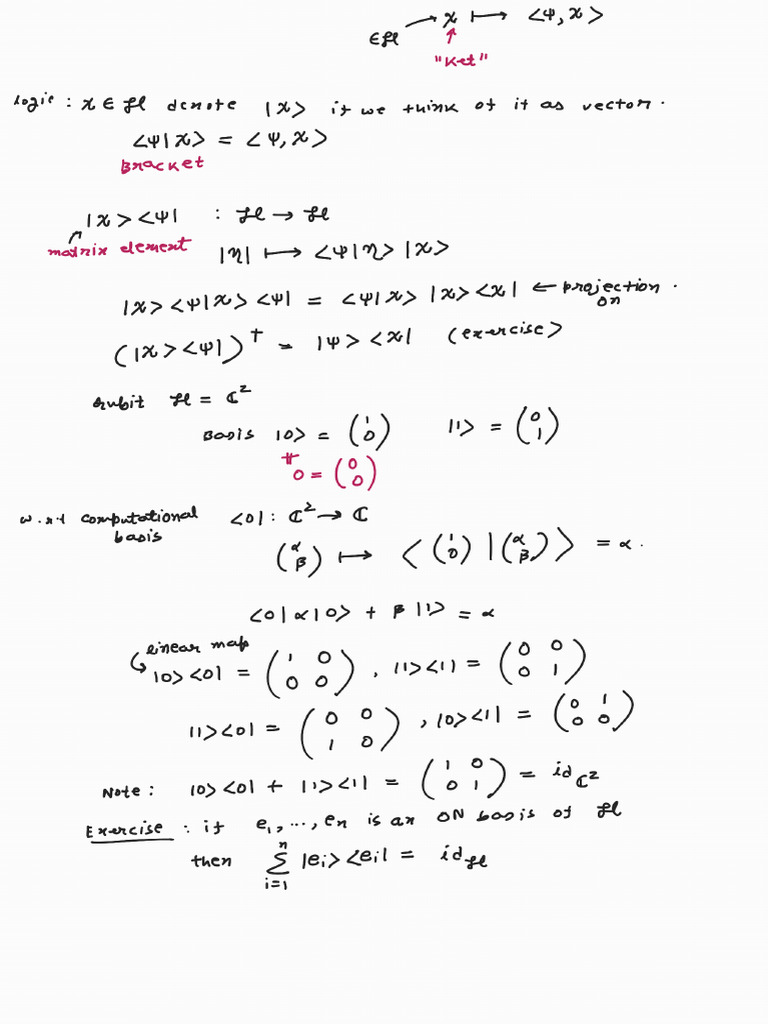 ∈ℋ → χ ⟼ <ψ, χ>
↑
"Ket"
Logic : χ ∈ ℋ denote |χ> if we think of it as vector.
<ψ|χ> = <ψ, χ>
Bracket
|χ> <ψ| : ℋ → ℋ
matrix element
|η| ⟼ <ψ|η> |χ>
|χ> <ψ|χ> <ψ| = <ψ|χ> |χ> <χ| ← projection on .
(|χ> <ψ|)† = |ψ> <χ| (exercise)
qubit ℋ = ℂ²
Basis |0> = (1 0) |1> = (0 1)
≠
0 = (0 0)
w.r.t computational basis <0| : ℂ² → ℂ
(α β) ⟼ < (1 0) | (α β) > = α .
<0| α |0> + β |1> = α
linear map
|0> <0| = (1 0 0 0) , |1> <1| = (0 0 0 1)
|1> <0| = (0 0 1 0) , |0> <1| = (0 1 0 0)
Note : |0> <0| + |1> <1| = (1 0 0 1) = id ℂ²
Exercise : if e₁, ..., eₙ is an ON basis of ℋ
then ∑ᵢ₌₁ⁿ |eᵢ> <eᵢ| = id ℋ